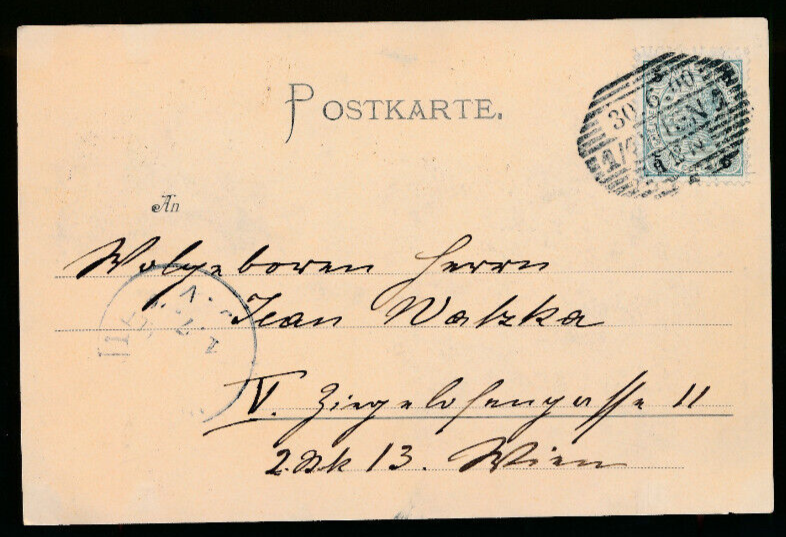 POSTKARTE.
30.6.00
An
Wolgeboren Herrn
Jean Watzka
V. Ziegelofengasse 11
2. Stk 13. Wien